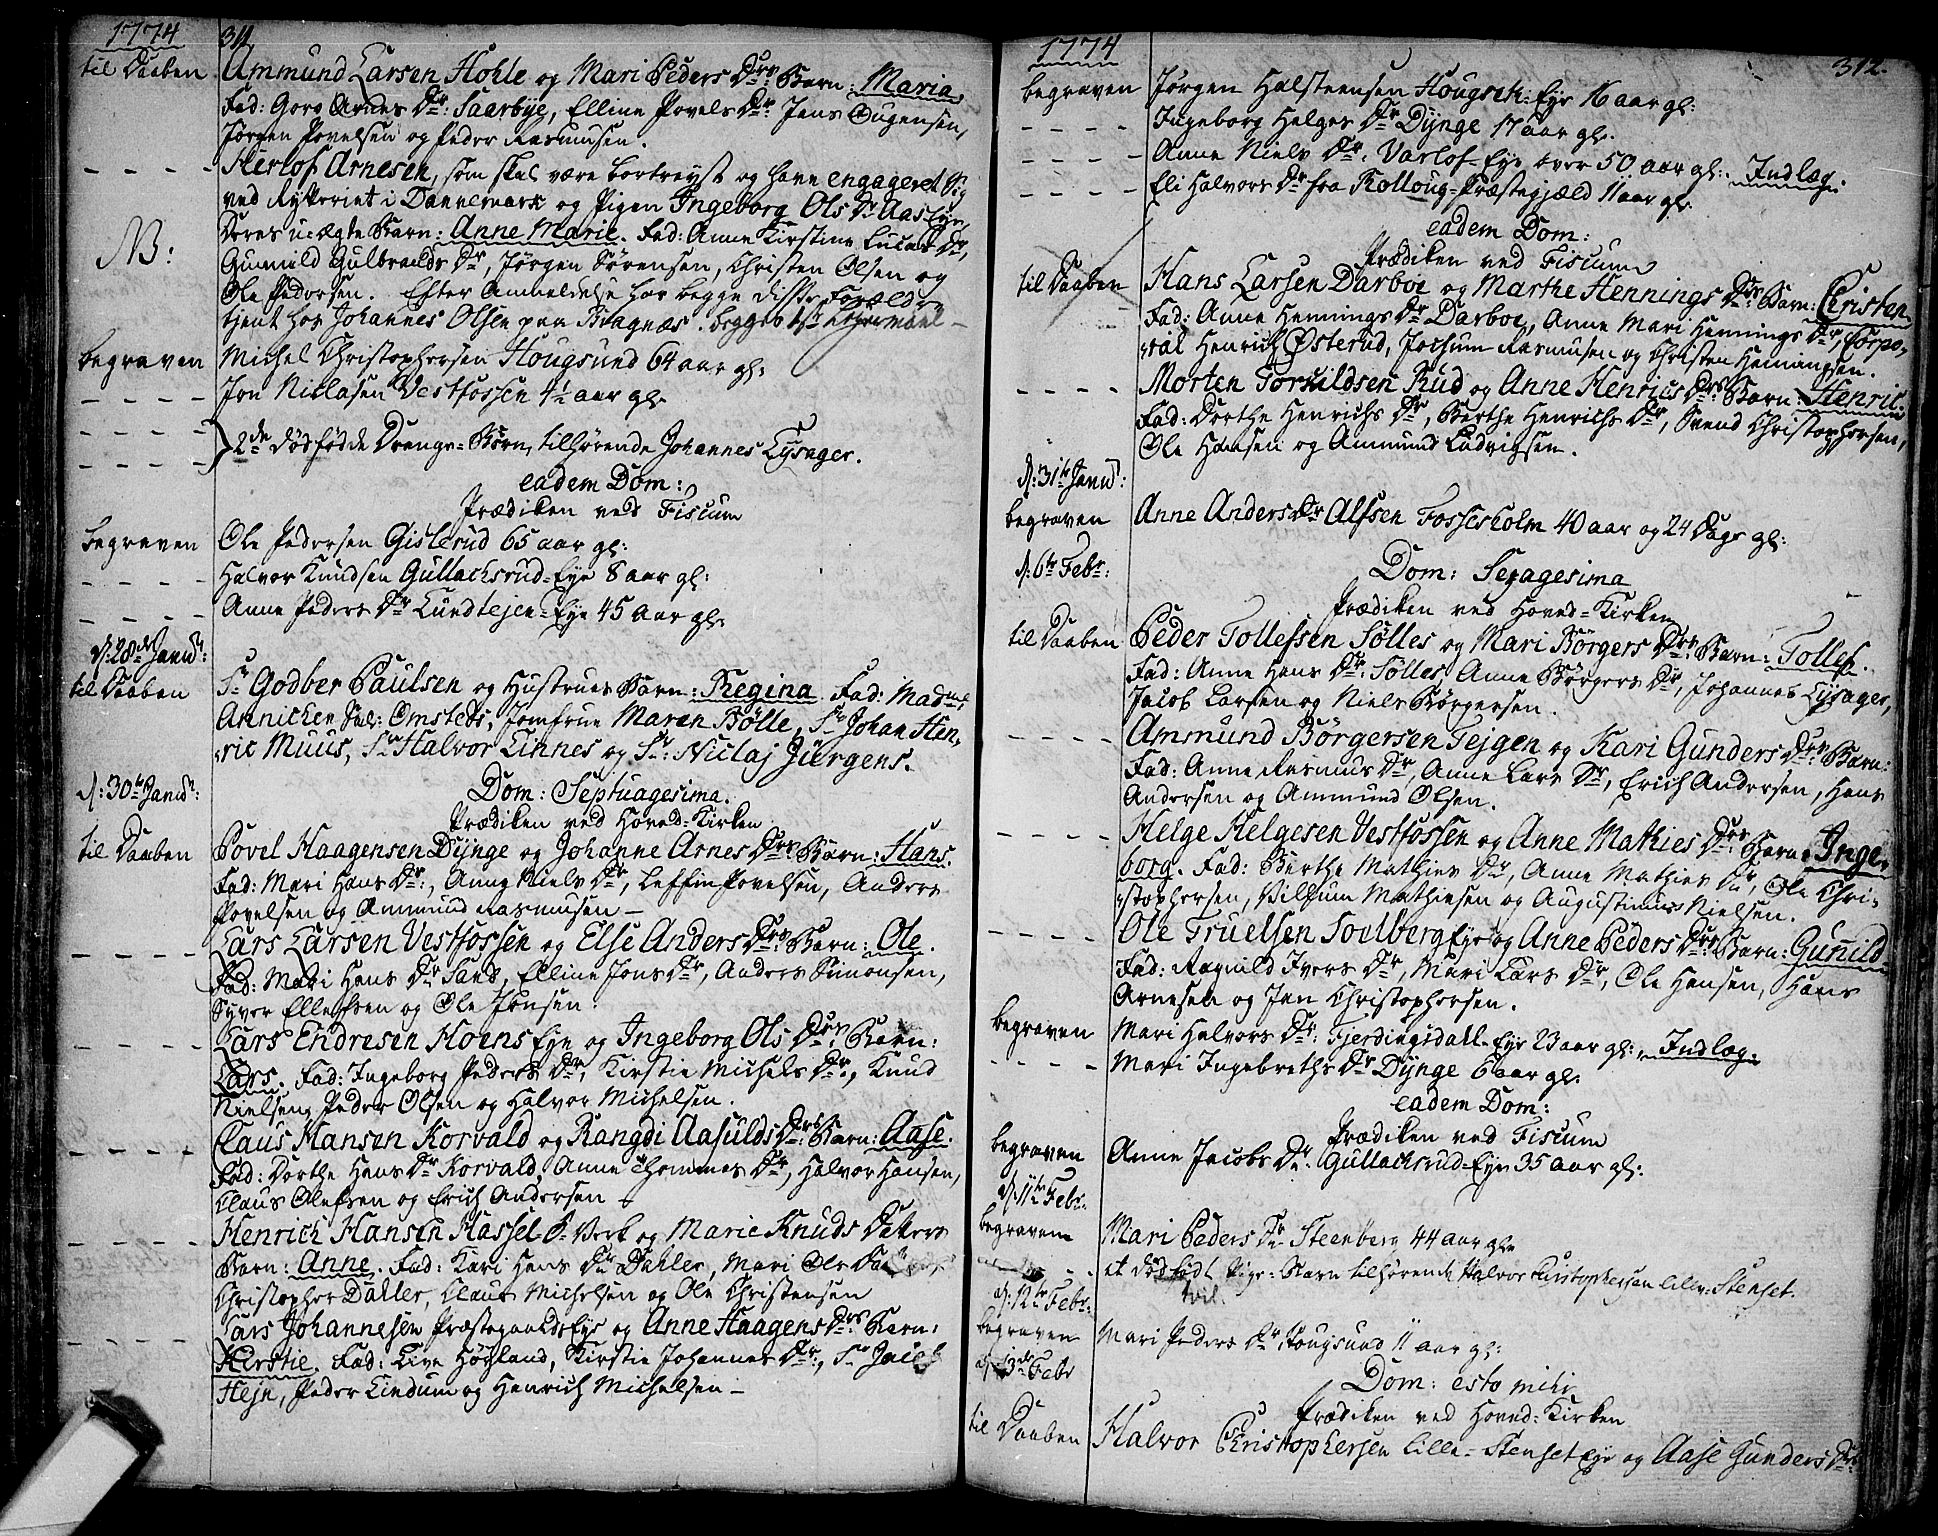 1774 311
til Daaben Ammund Larsen Hohle og Mari Peders Dtrs Barn: Maria
Fad: Goro Arnes Dtr: Saarbye, Elline Povels Dtr: Jens Eugensen,
Jørgen Povelsen og Peder Rasmusen.
- - - - Herlof Arnesen, som skal være bortreyst og have engageret sig
ved Rytteriet i Dannemark og Pigen Ingeborg Ols Dr Aas Eye
NB: Deres u-ægte Barn: Anne Marie. Fad: Anne Kirstine Lucas Dr,
Gunild Gulbrands Dr, Jørgen Sørensen, Christen Olsen og
Ole Pedersen. Efter Anmeldelse har begge disse Forældre
tjent hos Johannes Olsen paa Bragnæs. begges 1ste Leyermaal -
begraven Michel Christophersen Hougsund 64 aar gl:
- - - - Jon Niclasen Vestfossen 4½ aar gl.
- - - - } 2de dødfødde Drenge-Børn, tilhørende Johannes Lysager.
- - - -
eadem Dom:
Prædiken ved Fiscum
begraven Ole Pedersen Gislerud 65 aar gl:
- - - - Halvor Knudsen Gullachsrud-Eye 8 aar gl:
- - - - Anne Peders Dr Lundtejen-Eye 45 aar gl.
d: 28de Janu:
til Daaben Sr Godber Paulsen og Hustrues Barn: Regina. Fad: Madme
Annichen Sal: Omsteds, Jomfrue Maren Bølle, Sr Johan Hen,
,ric Muus, Sr Halvor Linnes og Sr: Niclaj Jürgens.
d: 30te Janu: Dom: Septuagesima.
Prædiken ved Hoved-Kirken
til Daaben Povel Haagensen Dynge og Johanne Arnes Dtrs Barn: Hans.
Fad: Mari Hans Dr:, Anne Niels Dr, Leffin Povelsen, Anders
Povelsen og Ammund Rasmusen -
- - - - Lars Larsen Vestfossen og Else Anders Dtrs Barn: Ole.
Fad: Mari Hans Dr Sand, Elline Jons Dr, Anders Simonsen,
Syver Ellefsen og Ole Jensen.
- - - - Lars Endresen Hoens Eye og Ingeborg Ols Dtrs Barn:
Lars. Fad: Ingeborg Peders Dr, Kirstie Michels Dr, Knud
Nielsen, Peder Olsen og Halvor Michelsen.
- - - - Claus Hansen Korvald og Rangdi Aasulds Dtrs Barn: Aase.
Fad: Dorthe Hans Dr Korvald, Anne Thommes Dr, Halvor Hansen,
Claus Olefsen og Erich Andersen -
- - - - Henrich Hansen Hassel-Verk og Marie Knuds Datters
Barn: Anne. Fad: Kari Hans Dr Dahler, Mari Ols
Christopher Dahler, Claus Michelsen og Ole Christensen
- - - - Lars Johannesen Præstegaards Eye og Anne Haagens Dtrs Barn:
Kirstie. Fad: Live Høgland, Kirstie Johannes Dr, Sr Jacob
Hejn, Peder Lindum og Henrich Michelsen -
1774 312.
begraven Jørgen Halsteensen Hougs Eye 16 aar gl:
- - - - Ingeborg Helges Dr Dynge 17 aar gl.
- - - - Anne Niels Dr. Varlof-Eye over 50 aar gl:. Indlæg.
- - - - Eli Halvors Dr fra Rolloug-Præstegjæld 11 aar gl.
eadem Dom:
Prædiken ved Fiscum
til Daaben Hans Larsen Darboe og Marthe Hennings Dtrs Barn: Christen
Fad: Anne Hennings Dr Darboe, Anne Mari Hennings Dr, Corpo,
,ral Henrich Østerud, Jochum Rasmusen og Christen Hemingsen.
- - - - Morten Torkildsen Rud og Anne Henrics Dtrs Barn: Henric.
Fad: Dorthe Henrichs Dr, Berthe Henrichs Dr, Svend Christophersen,
Ole Hansen og Ammund Ladvigsen.
d: 31te Janu:
begraven Anne Anders Dr Alfsen Fossesholm 40 aar og 24 Dage gl:
d: 6te Febr: Dom: Sexagesima
Prædiken ved Hoved-Kirken
til Daaben Peder Tollefsen Sølles og Mari Børgers Dtrs Barn: Tollef.
Fad: Anne Hans Dr Sølles, Anne Børgers Dr, Johannes Lysager,
Jacob Larsen og Niels Børgersen.
- - - - Ammund Børgersen Tejgen og Kari Gunders Dtrs Barn:
Fad: Anne Rasmus Dr, Anne Lars Dr, Erich Andersen, Hans
Andersen og Ammund Olsen.
- - - - Helge Helgesen Vestfossen og Anne Mathies Dtrs Barn: Inge,
borg. Fad: Berthe Mathies Dr, Anne Mathies Dr, Ole Chri,
,stophersen, Villum Mathiesen og Augustinus Nielsen.
- - - - Ole Truelsen Soelberg Eye og Anne Peders Dtrs Barn: Gunild
Fad: Ragnild Ivers Dr, Mari Lars Dr, Ole Hansen, Hans
Arnesen og Jan Christophersen.
begraven Mari Halvors Dr: Fjerdingsdall-Eye 23 aar gl:, Indlæg:
- - - Mari Ingebreths Dr Dynge 6 aar gl:
eadem Dom:
Prædiken ved Fiscum
begraven Anne Jacobs Dr. Gullachsrud-Eye 35 aar gl:
d: 11te Febr:
begraven Mari Peders Dr Steenberg 44 aar gl.
- - et dødfødt Pige-Barn tilhørende Halvor Christophersen Lille-Stenset.
tvil.
d: 12te Febr:
begraven Mari Peders Dr Hougsund 11 aar gl:
d: 13de Febr Dom: esto mihi
Prædiken ved Hoved-Kirken
til Daaben Halvor Christophersen Lille-Stenset Eye og Aase Gunders Dtrs